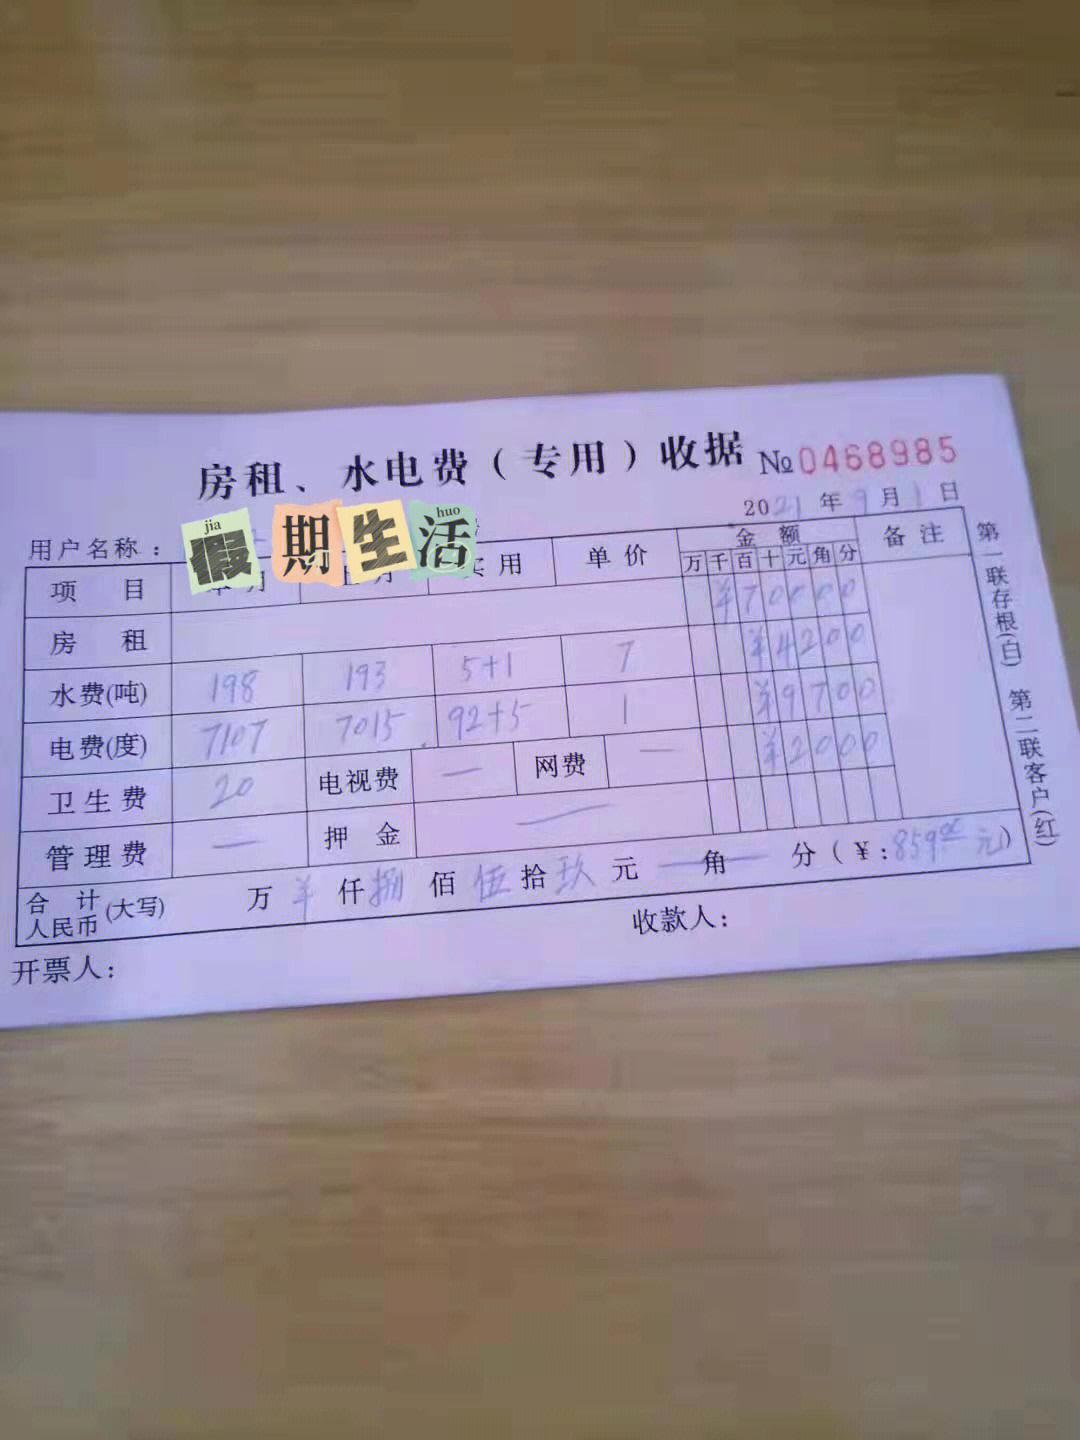 房租、水电费(专用)收据 №0468985
2021年9月1日
用户名称：
jia huo
假期生活
项目 实用 单价 金额 备注
万 千 百 十 元 角 分
房租 ¥70000
水费(吨) 198 193 5+1 7 ¥4200
电费(度) 7107 7015 92+5 1 ¥9700
卫生费 20 电视费 — 网费 — ¥2000
管理费 — 押金 —
合计人民币(大写) 万 ¥ 仟 捌 佰 伍 拾 玖 元 — 角 — 分(¥:859.00元)
开票人： 收款人：
第一联存根(白) 第二联客户(红)